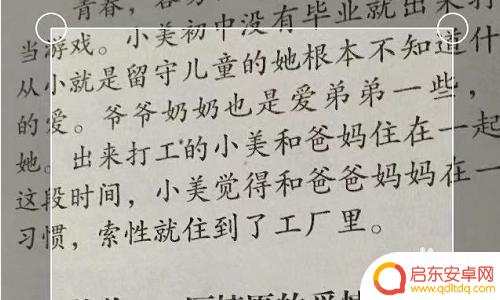 青春，
当游戏。小美初中没有毕业就出来打
从小就是留守儿童的她根本不知道什
的爱。爷爷奶奶也是爱弟弟一些，
她。出来打工的小美和爸妈住在一起
这段时间，小美觉得和爸爸妈妈在一
习惯，索性就住到了工厂里。
启东安卓网
qdltdq.com